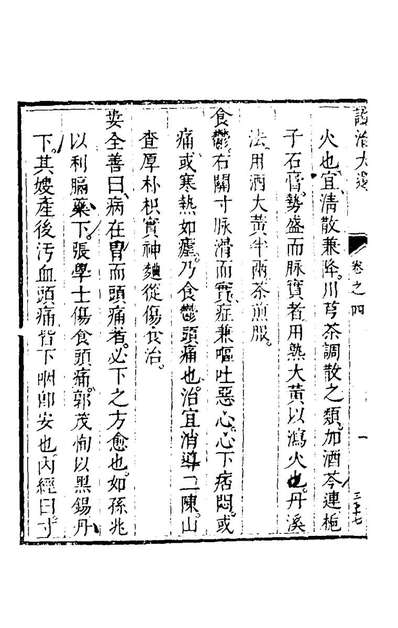 證治大還
卷之四
一
三十七
火也宜清散兼降川芎茶調散之類加酒芩連梔
子石膏勢盛而脉實者用熟大黃以瀉火也丹溪
法用酒大黃半兩茶煎服
食鬱右關寸脉滑而實症兼嘔吐惡心心下痞悶或
痛或寒熱如瘧乃食鬱頭痛也治宜消導二陳山
查厚朴枳實神麯從傷食治
婁全善曰病在胃而頭痛者必下之方愈也如孫兆
以利膈藥下張學士傷食頭痛郭茂恂以黑錫丹
下其嫂產後汚血頭痛皆下咽卽安也內經曰寸